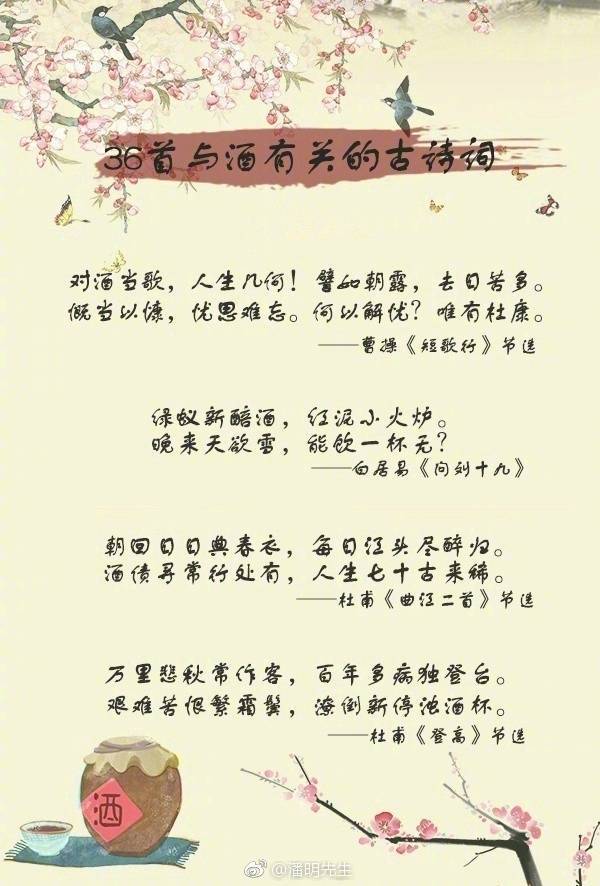 36首与酒有关的古诗词
对酒当歌，人生几何！譬如朝露，去日苦多。
慨当以慷，忧思难忘。何以解忧？唯有杜康。
——曹操《短歌行》节选
绿蚁新醅酒，红泥小火炉。
晚来天欲雪，能饮一杯无？
——白居易《问刘十九》
朝回日日典春衣，每日江头尽醉归。
酒债寻常行处有，人生七十古来稀。
——杜甫《曲江二首》节选
万里悲秋常作客，百年多病独登台。
艰难苦恨繁霜鬓，潦倒新停浊酒杯。
——杜甫《登高》节选
酒
@潘明先生